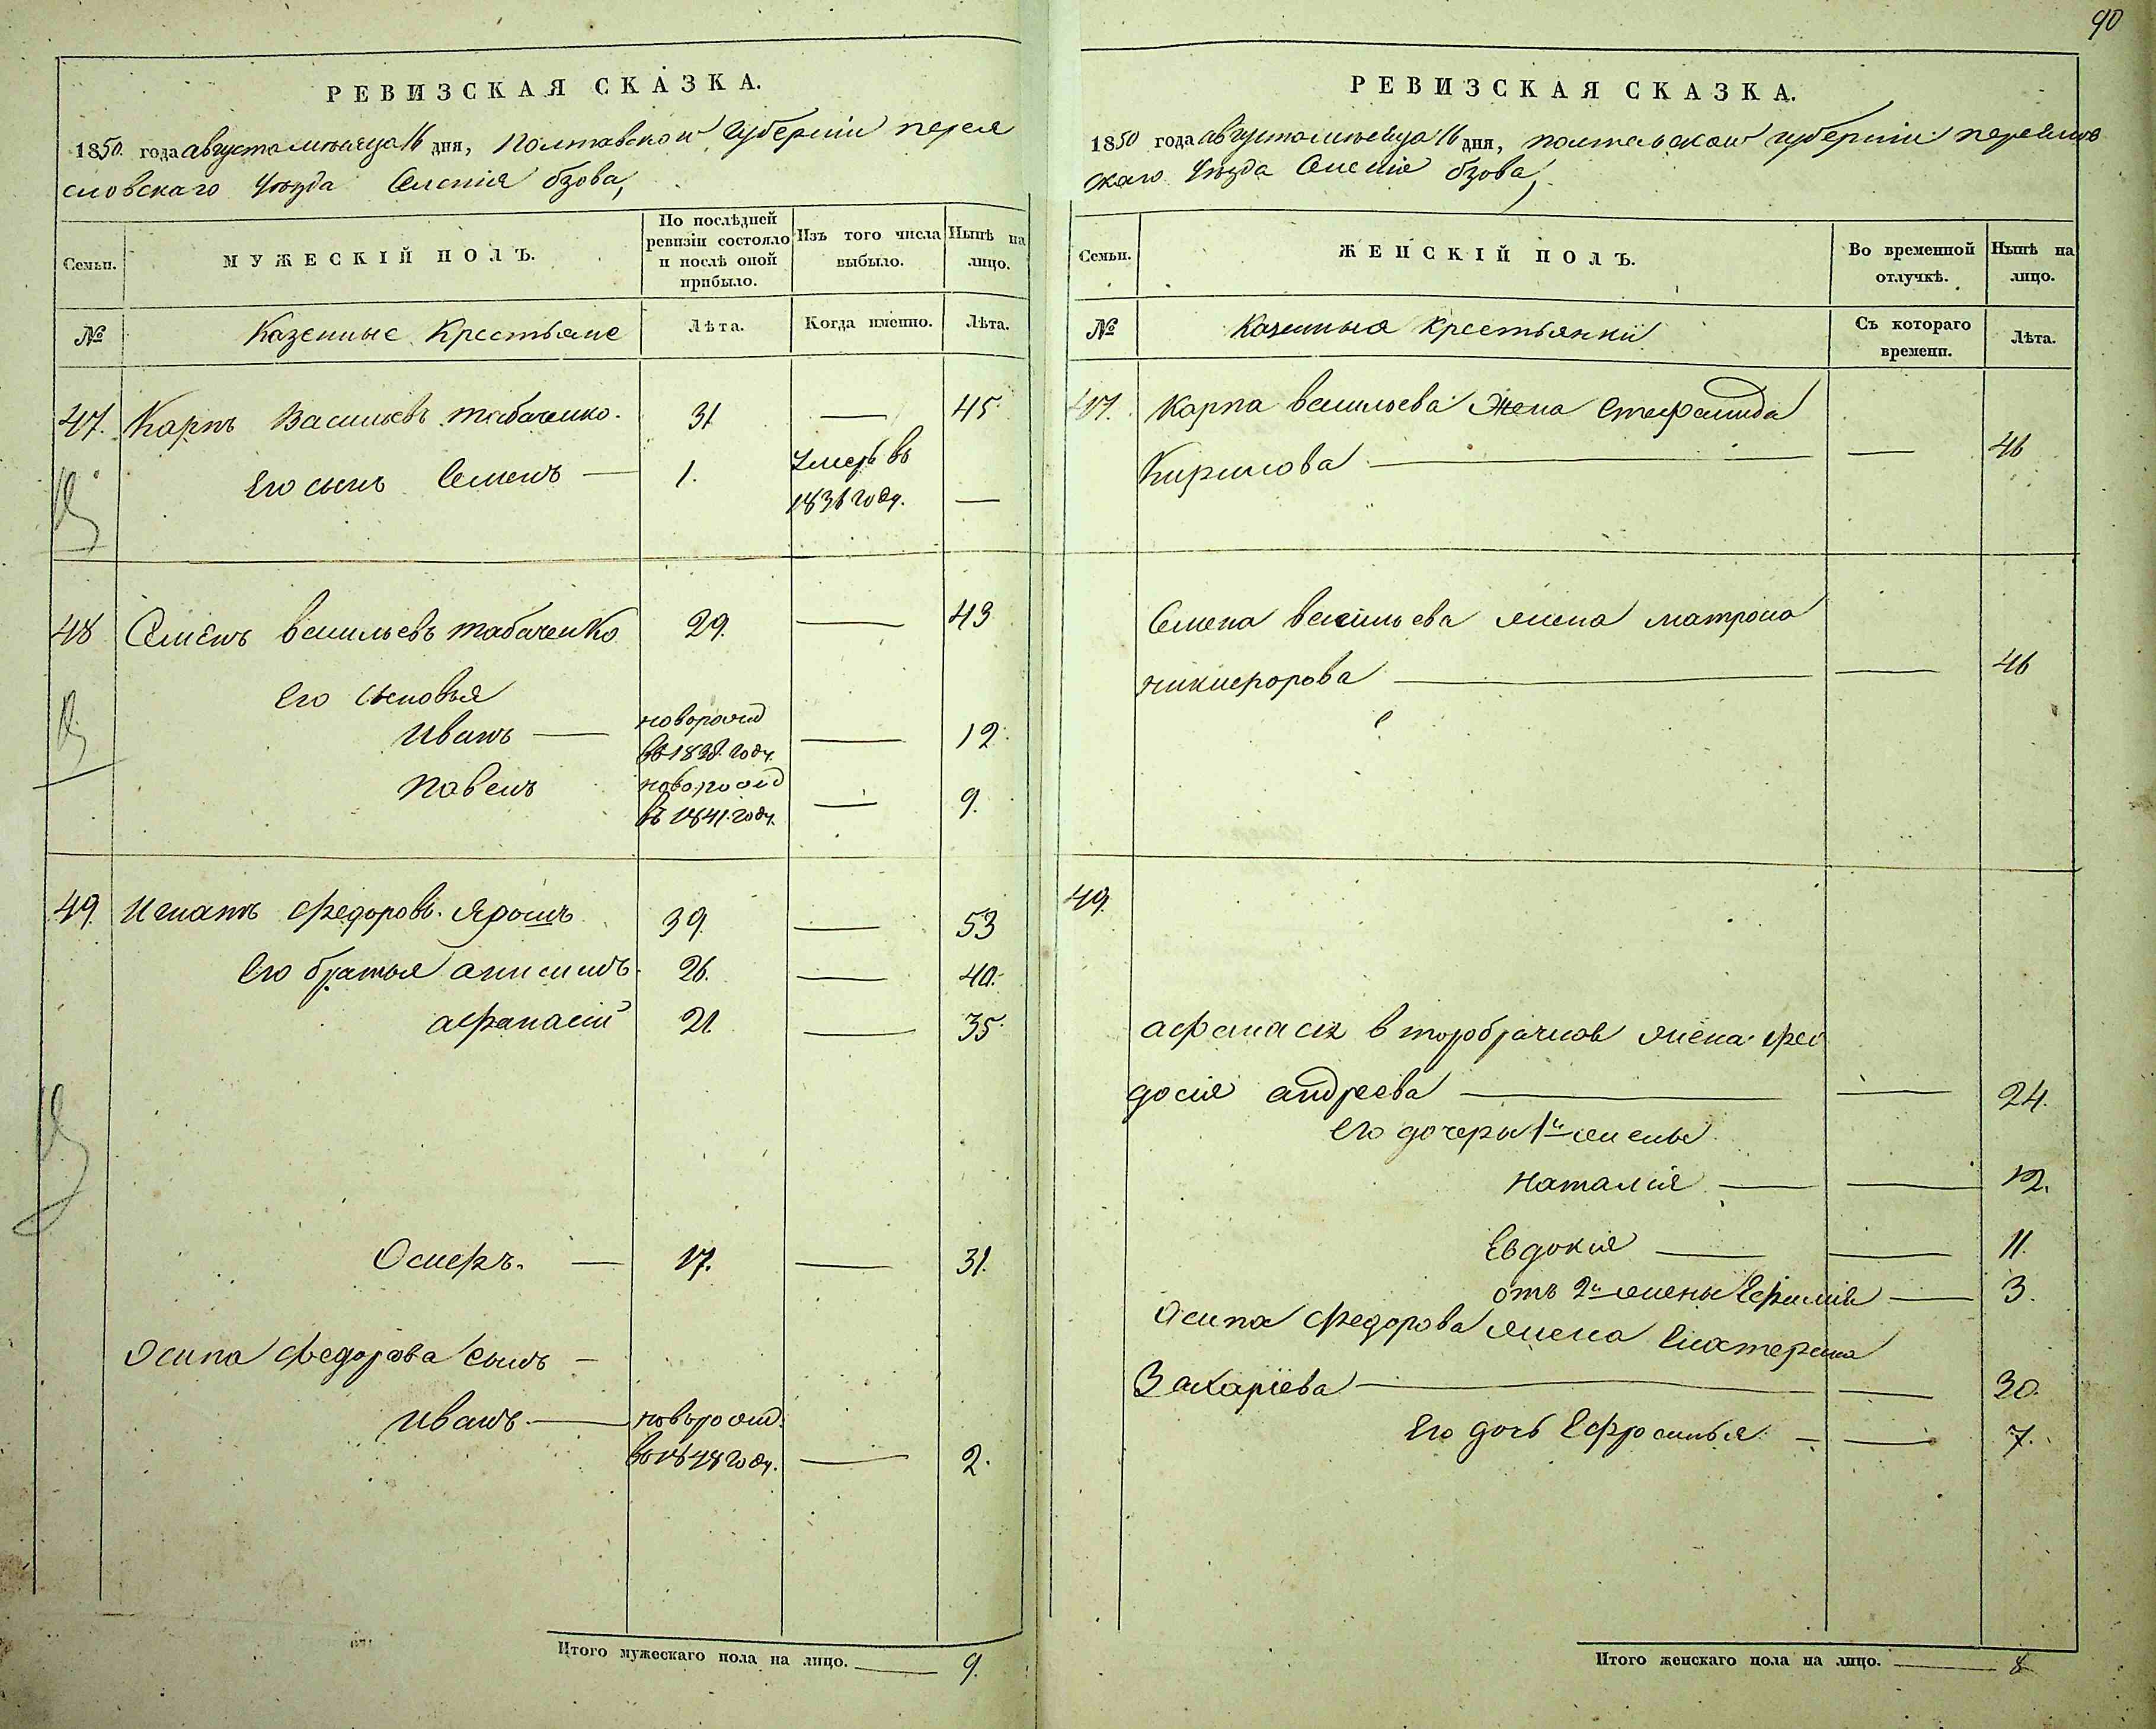 90
РЕВИЗСКАЯ СКАЗКА.
1850. года августа мѣсяца 16 дня, Полтавской Губерніи перея
словскаго Уѣзда Селенія бзова,
Семьи.
МУЖЕСКІЙ ПОЛЪ.
По послѣдней ревизіи состояло и послѣ оной прибыло.
Изъ того числа выбыло.
Нынѣ на лицо.
№
Казенные Крестьяне
Лѣта.
Когда именно.
Лѣта.
47. Карпъ Васильевъ табаченко. 31 — 45
Его сынъ Семенъ — 1. Умеръ въ
1836 году. —
48 Семенъ васильевъ табаченко 29. — 43
Его сыновья
Иванъ — новорожд
въ 1838. году. — 12
Павелъ новорожд
въ 1841. году. — 9.
49. Игнатъ Федоровъ. Ярошъ 39. — 53
Его братья анисимъ 26. — 40.
афанасій 21. — 35.
Осипъ. — 17. — 31.
Осипа Федорова сынъ —
Иванъ. — новорожд.
въ 1848 году. — 2.
Итого мужескаго пола на лицо. — 9.
РЕВИЗСКАЯ СКАЗКА.
1850 года августа мѣсяца 16 дня, полтавской губерніи переяслов
скаго Уѣзда Селенія бзова,
Семьи.
ЖЕНСКІЙ ПОЛЪ.
Во временной отлучкѣ.
Нынѣ на лицо.
№
Казенныя Крестьянки
Съ котораго времени.
Лѣта.
47. Карпа васильева Жена Стефанида
Кирилова — — 46
Семена васильева жена матрона
никифорова — — 46
49.
афанасія второбрачная жена Фео
досія андреева — — 24.
Его дочери 1й жены
Наталія — — 12.
Евдокія — — 11.
отъ 2й жены Ефимія — 3.
Осипа Федорова жена Екатерина
Захаріева — — 30.
Его дочь Ефросинья — — 7.
Итого женскаго пола на лицо. — 8